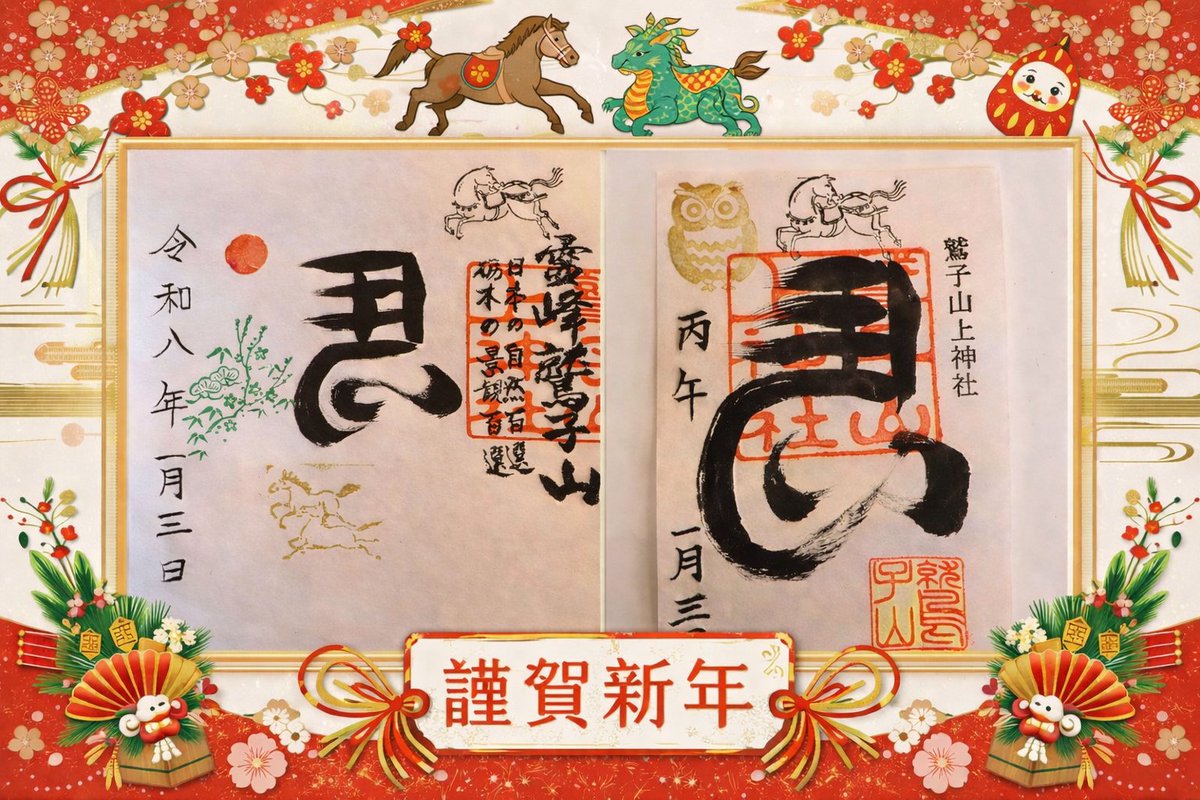 霊峰鷲子山
日本の自然百選
栃木の景観百選
令和八年一月三日
鷲子山上神社
丙午
一月三
鷲子山
謹賀新年